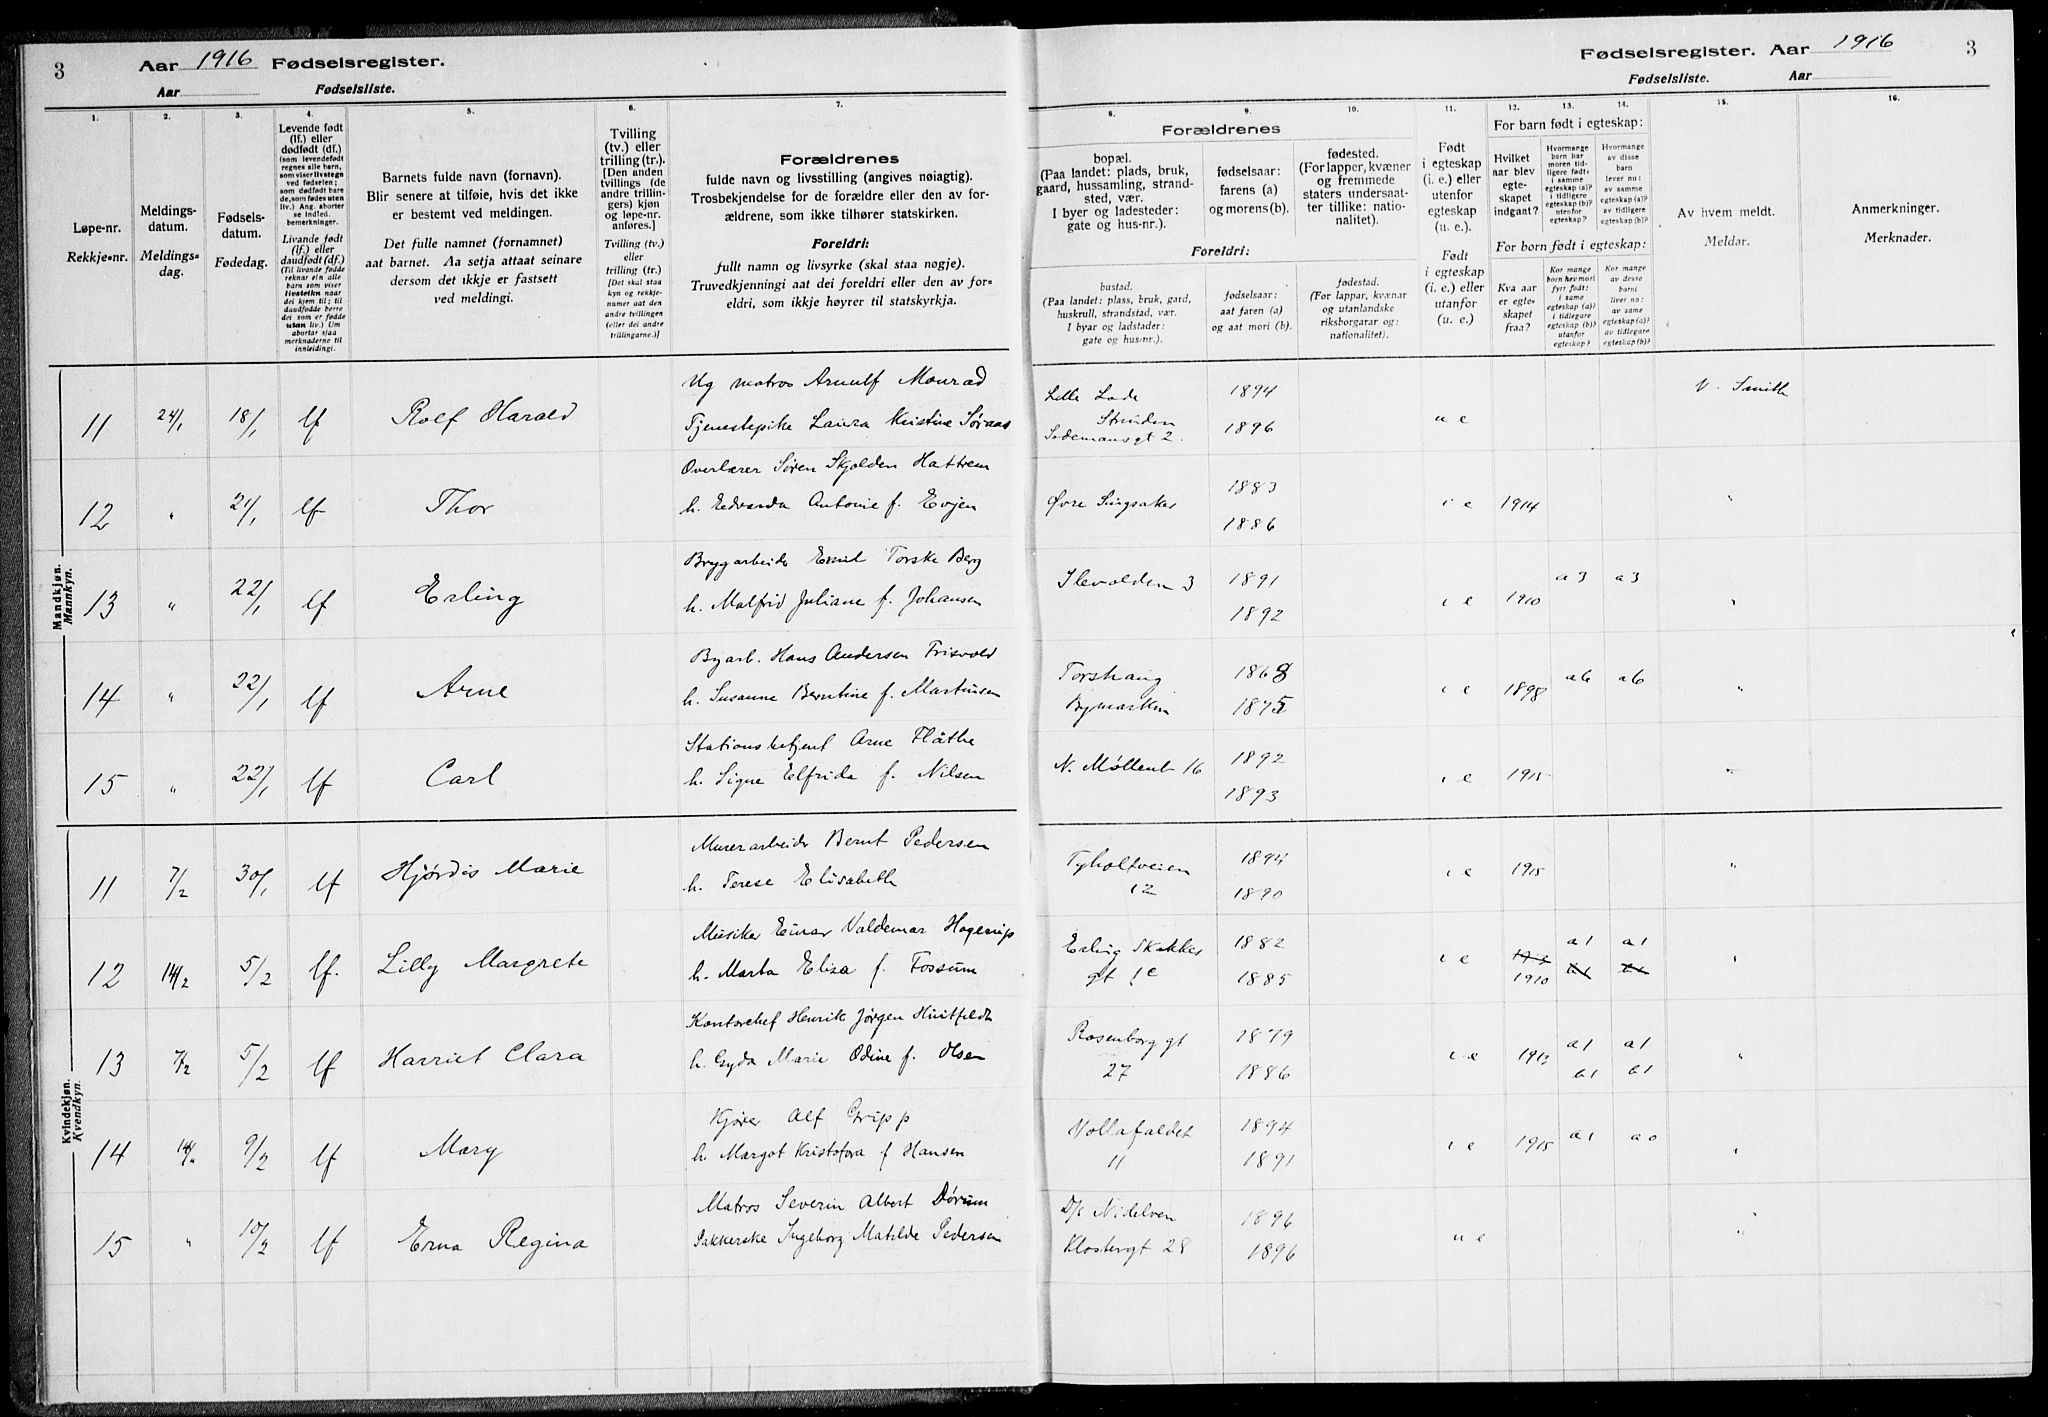 3 Aar 1916 Fødselsregister.
Aar Fødselsliste.
Fødselsregister. Aar 1916 3
Fødselsliste. Aar
1. 2. 3. 4. 5. 6. 7.
Løpe-nr.
Rekkje-nr.
Meldings-
datum.
Meldings-
dag.
Fødsels-
datum.
Fødedag.
Levende født
(lf.) eller
dødfødt (df.)
(som levendefødt
regnes alle barn,
som viser livstegn
ved fødselen;
som dødfødt bare
de, som fødes uten
liv.) Ang. aborter
se indled.
bemerkninger.
Livande født
(lf.) eller
daudfødt (df.)
(Til livande fødde
reknar ein alle
barn som viser
livsteikn naar
dei kjem til; til
daudfødde berre
dei som er fødde
utan liv.) Um
abortar sjaa
merknaderne til
innleidingi.
Barnets fulde navn (fornavn).
Blir senere at tilføie, hvis det ikke
er bestemt ved meldingen.
Det fulle namnet (fornamnet)
aat barnet. Aa setja attaat seinare
dersom det ikkje er fastsett
ved meldingi.
Tvilling
(tv.) eller
trilling (tr.).
[Den anden
tvillings (de
andre trillin-
gers) kjøn
og løpe-nr.
anføres.]
Tvilling (tv.)
eller
trilling (tr.)
[Det skal staa
kyn og rekkje-
numer aat den
andre tvillingen
(eller dei andre
trillingarne.)]
Forældrenes
fulde navn og livsstilling (angives nøiagtig).
Trosbekjendelse for de forældre eller den av for-
ældrene, som ikke tilhører statskirken.
Foreldri:
fullt namn og livsyrke (skal staa nøgje).
Truvedkjenningi aat dei foreldri eller den av for-
eldri, som ikkje høyrer til statskyrkja.
8. 9. 10. 11. 12. 13. 14. 15. 16.
Forældrenes
bopæl.
(Paa landet: plads, bruk,
gaard, hussamling, strand-
sted, vær.
I byer og ladesteder:
gate og hus-nr.).
fødselsaar:
farens (a)
og morens (b).
fødested.
(For lapper, kvæner
og fremmede
staters undersaat-
ter tillike: natio-
nalitet).
Foreldri:
bustad.
(Paa landet: plass, bruk, gard,
huskrull, strandstad, vær.
I byar og ladstader:
gate og hus-nr.).
fødselsaar:
aat faren (a)
og aat mori (b).
fødestad.
(For lappar, kvænar
og utanlandske
riksborgarar og:
nationalitet).
Født
i egteskap
(i. e.) eller
utenfor
egteskap
(u. e.).
Født
i egteskap
(i. e.) eller
utanfor
(u. e.)
For barn født i egteskap:
Hvilket
aar blev
egte-
skapet
indgaat?
Hvormange
barn har
moren tid-
ligere født:
i samme
egteskap (a)?
i tidligere
egteskap (b)?
utenfor
egteskap?
Hvormange
av disse
barn
lever nu:
av samme
egteskap (a)?
av tidligere
egteskap (b)?
For born født i egteskap:
Kva aar
er egte-
skapet
fraa?
Kor mange
born hev mori
fyrr født:
i same
egteskap (a)?
i tidlegare
egteskap (b)?
utanfor
egteskap?
Kor mange
av desse
borni
liver no:
av same
egteskap (a)?
av tidlegare
egteskap (b)?
Av hvem meldt.
Meldar.
Anmerkninger.
Merknader.
Mandkjøn.
Mannkyn.
11 24/1 18/1 lf Rolf Harald Ug matros Arnulf Monrad Lille Lade 1894 u e V. Smith
Tjenestepike Laura Kristine Søraas Strinden Sodemansgt 2. 1896
12 " 21/1 lf Thor Overlærer Søren Skjolden Hattrem Øvre Singsaker 1883 i e 1914 "
h. Edvarda Antonie f. Evjen 1886
13 " 22/1 lf Erling Bryggarbeider Emil Torske Berg Ilevolden 3 1891 i e 1910 a3 a3 "
h. Malfrid Juliane f. Johansen 1892
14 " 22/1 lf Arne Byarb. Hans Andersen Trisvold Torshaug 1868 i e 1898 a6 a6 "
h. Susanne Berntine f. Martinsen Bymarken 1875
15 " 22/1 lf Carl Stationsbetjent Arne Flåthe N. Møllenb 16 1892 i e 1915 "
h. Signe Elfrida f. Nilsen 1893
Kvindekjøn.
Kvendkyn.
11 7/2 30/1 lf Hjørdis Marie Murerarbeider Bernt Pedersen Tyholtveien 1894 i e 1915 "
h. Terese Elisabeth 12 1890
12 14/2 5/2 lf. Lilly Margrete Musiker Einar Valdemar Hagerup Erling Skakkes 1882 i e a1 a1 "
h. Marta Eliza f. Fossum gt 1c 1885 1910
13 7/2 5/2 lf Harriet Clara Kontorchef Henrik Jørgen Huitfeldt Rosenborg gt 1879 i e 1912 a1 a1 "
h. Gyda Marie Odine f. Olsen 27 1886 b1 b1
14 14/2 9/2 lf Mary Kjører Alf Gripp Vollafaldet 1894 i e 1915 a1 a0 "
h. Margot Kristofora f Hansen 11 1891
15 " 10/2 lf Erna Regina Matros Severin Albert Dørum D/s Nidelven 1896 u e "
Pakkerske Ingeborg Matilde Pedersen Klostergt 28 1896